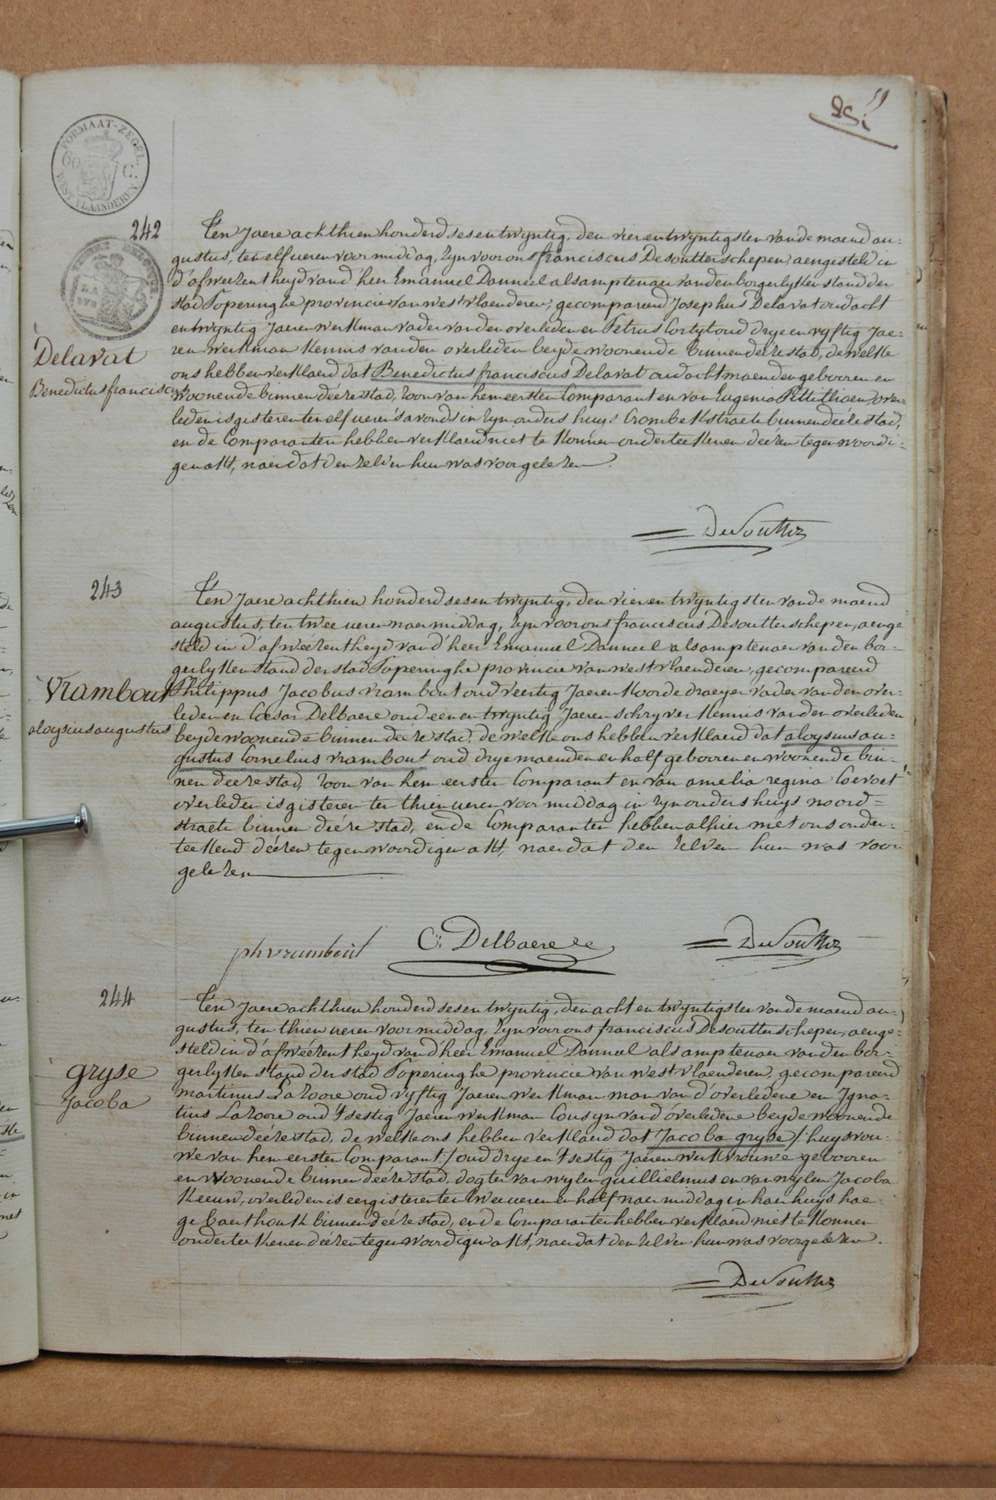 51
FORMAAT-ZEGEL
WEST VLAANDEREN
242
Ten Jaere achthien honderd sesentwyntig, den vierentwyntigsten vande maend au-
gustus, ten elf ueren voormiddag, zyn voor ons franciscus Desoutter schepen, aengesteld in
d'afweezentheyd vand'heer Emanuel Danneel als amptenaer vanden borgerlyken stand der
stad Poperinghe provincie van westvlaenderen, gecompareerd Josephus Delavat oud acht
entwyntig Jaeren werkman vader van den overleden en Petrus Cortyl oud dryenvyftig Jae-
ren werkman kennis vanden overleden beyde woonende binnen deeze stad, de welke
Delavat
Benedictus franciscus
ons hebben verklaerd dat Benedictus franciscus Delavat oud acht maenden gebooren en
woonende binnen deeze stad, zoon van hem eersten Comparant en van Eugenia Pillithoen, over-
leden is gisteren ten elf ueren s'avonds in zyn ouders huys Crombekstraete binnen deeze stad,
en de Comparanten hebben verklaerd niet te konnen onderteekenen deezen tegenwoordi-
gen akt, naer dat den zelven hun was voorgelezen.
DeSoutter
243
Ten Jaere achthien honderd sesentwyntig, den vierentwyntigsten vande maend
augustus, ten twee ueren naermiddag, zyn voor ons franciscus Desoutter schepen, aenge
steld in d'afweezentheyd vand'heer Emanuel Danneel als amptenaer vanden bor-
gerlyken stand der stad Poperinghe provincie van westvlaenderen, gecompareerd
Vrambout
aloysius augustus
Philippus Jacobus vrambout oud veertig Jaeren koordedraeyer vader van den over-
leden en Cæsar Delbaere oud eenentwyntig Jaeren schryver kennis vanden overleden
beyde woonende binnen deeze stad, de welke ons hebben verklaerd dat aloysius au-
gustus Cornelius vrambout oud drye maenden en half gebooren en woonende bin-
nen deeze stad, zoon van hem eersten Comparant en van amelia regina Coevoet
overleden is gisteren ten thien ueren voormiddag in zyn ouders huys noord=
straete binnen deeze stad, en de Comparanten hebben alhier met ons onder-
teekend deezen tegenwoordigen akt, naer dat den zelven hun was voor
gelezen
ph vrambout
C. Delbaere
DeSoutter
244
Ten Jaere achthien honderd sesentwyntig, den achtentwyntigsten vande maend au-
gustus, ten thien ueren voormiddag, zyn voor ons franciscus Desoutter schepen, aenge-
steld in d'afweezentheyd vand'heer Emanuel Danneel als amptenaer vanden bor-
gerlyken stand der stad Poperinghe provincie van westvlaenderen, gecompareerd
gryse
Jacoba
martinus LaZoore oud vyftig Jaeren werkman man van d'overledene en Igna-
tius LaZoore oud t'sestig Jaeren werkman Cousyn vand'overledene beyde woonende
binnen deeze stad, de welke ons hebben verklaerd dat Jacoba gryse (huysvrou-
we van hem eersten Comparant) oud drye en t'sestig Jaeren werkvrouwe gebooren
en woonende binnen deeze stad, dogter van wylen guillielmus en van wylen Jacoba
Keeuw, overleden is eergisteren ten twee ueren en half naermiddag in haer huys hae-
ge baerthoek binnen deeze stad, en de Comparanten hebben verklaerd niet te konnen
onderteekenen deezen tegenwoordigen akt, naer dat den zelven hun was voorgelezen.
DeSoutter